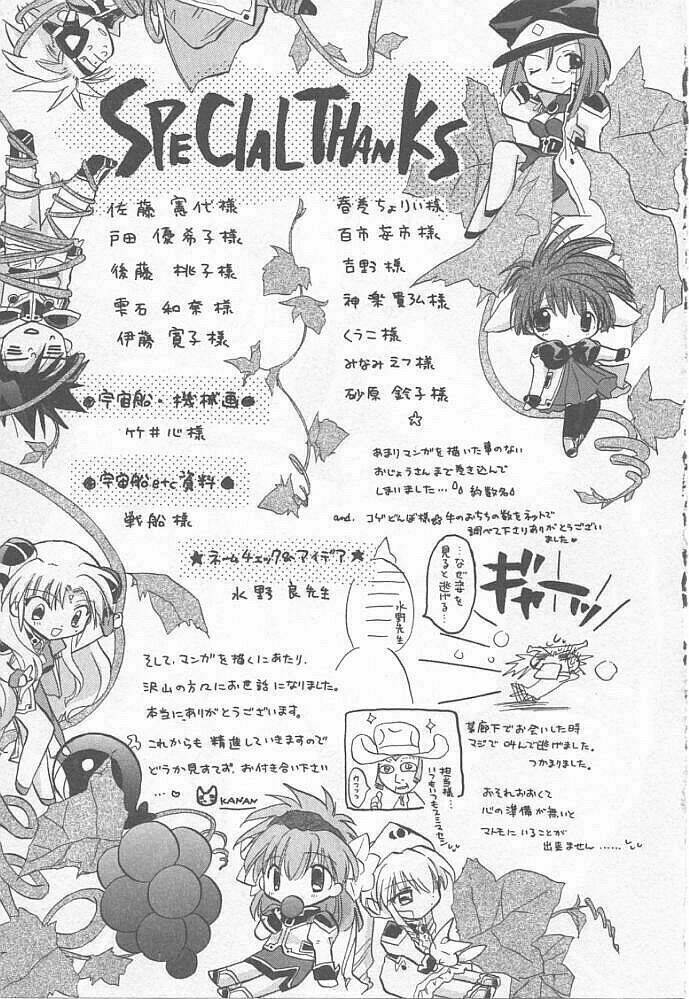 SPECIAL THANKS
佐藤憲代様
戸田優希子様
後藤桃子様
雫石和奈様
伊藤寛子様
春巻ちょりぃ様
百市安市様
吉野様
神楽貴弘様
くうこ様
みなみえつ様
砂原鈴子様
☆
●宇宙船・機械画●
竹井心様
●宇宙船etc資料●
戦船様
あまりマンガを描いた事のない
おじょうさんまで巻き込んで
しまいました…
約数名
and. コゲどんぼ様☆牛のおちちの数をネットで
調べて下さりありがとうござい
ました
★ネームチェック&アイデア★
水野良先生
水野先生
…なぜ姿を
見ると逃げる…
ギャーッ
そして、マンガを描くにあたり、
沢山の方々にお世話になりました。
本当にありがとうございます。
これからも精進していきますので
どうか見すてず、お付き合い下さい
…♡
KANAN
ウフフフ
担当様…
いつもいつもスミマセン
某廊下でお会いした時
マジで叫んで逃げました。
つかまりました。
おそれおおくて
心の準備が無いと
マトモにいることが
出来ません……